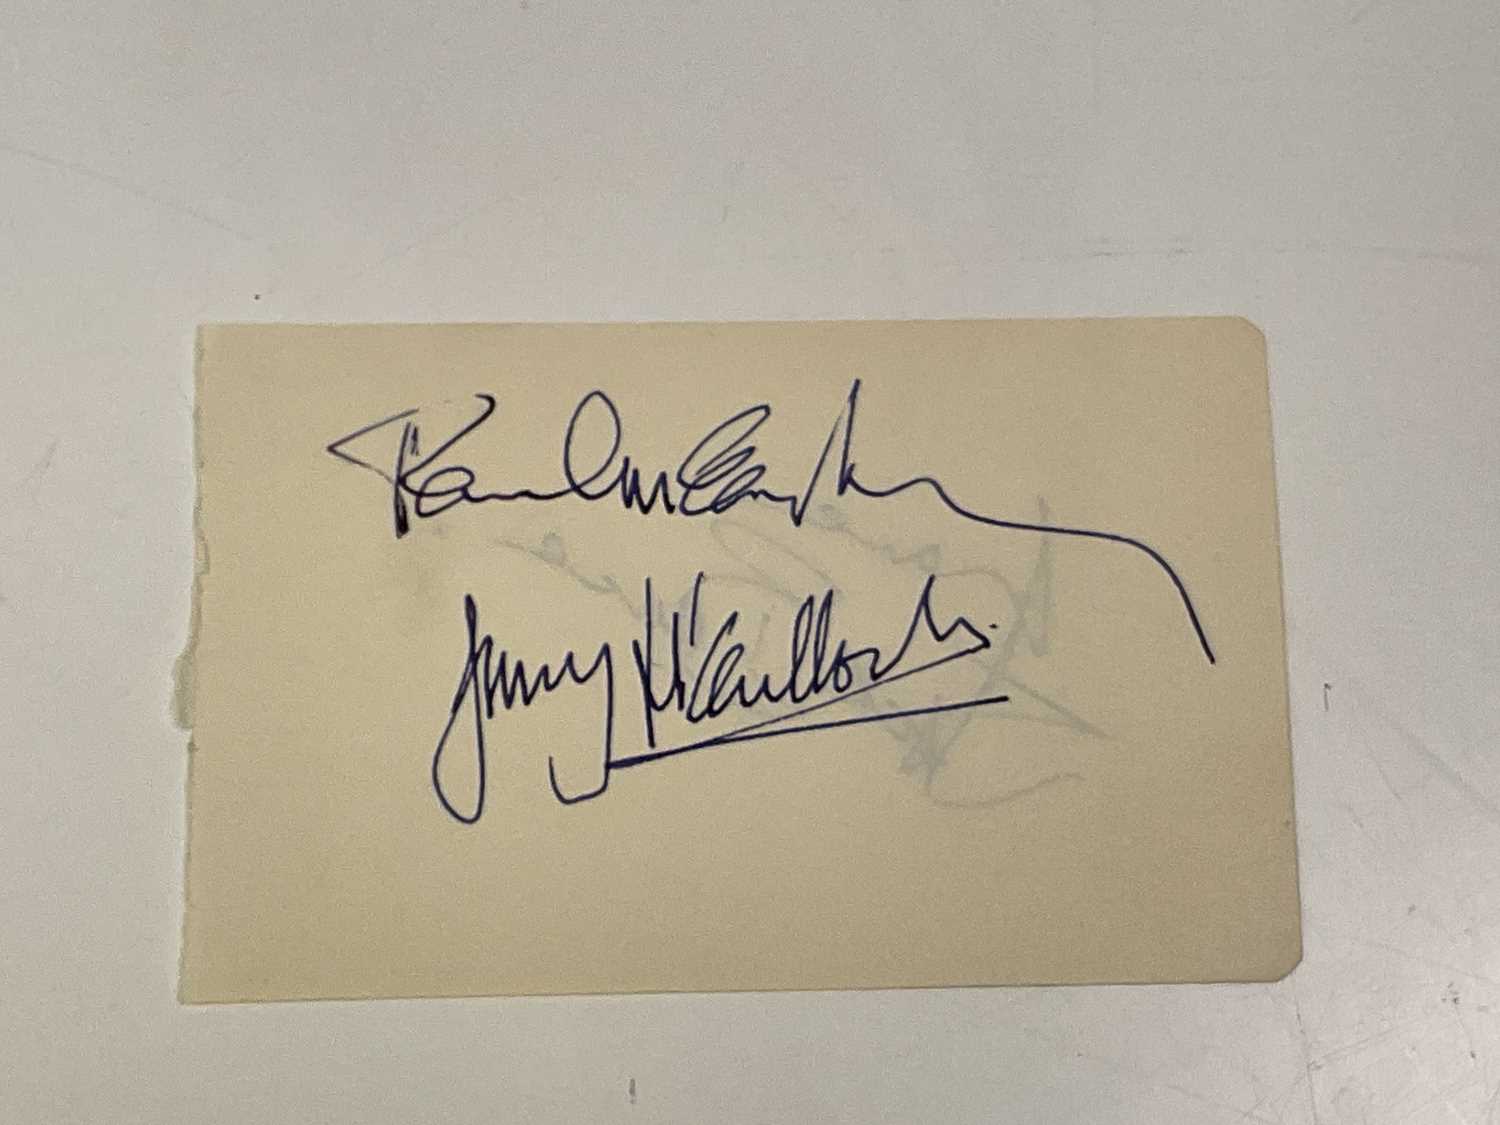 Paul McCartney
Jimmy McCulloch.